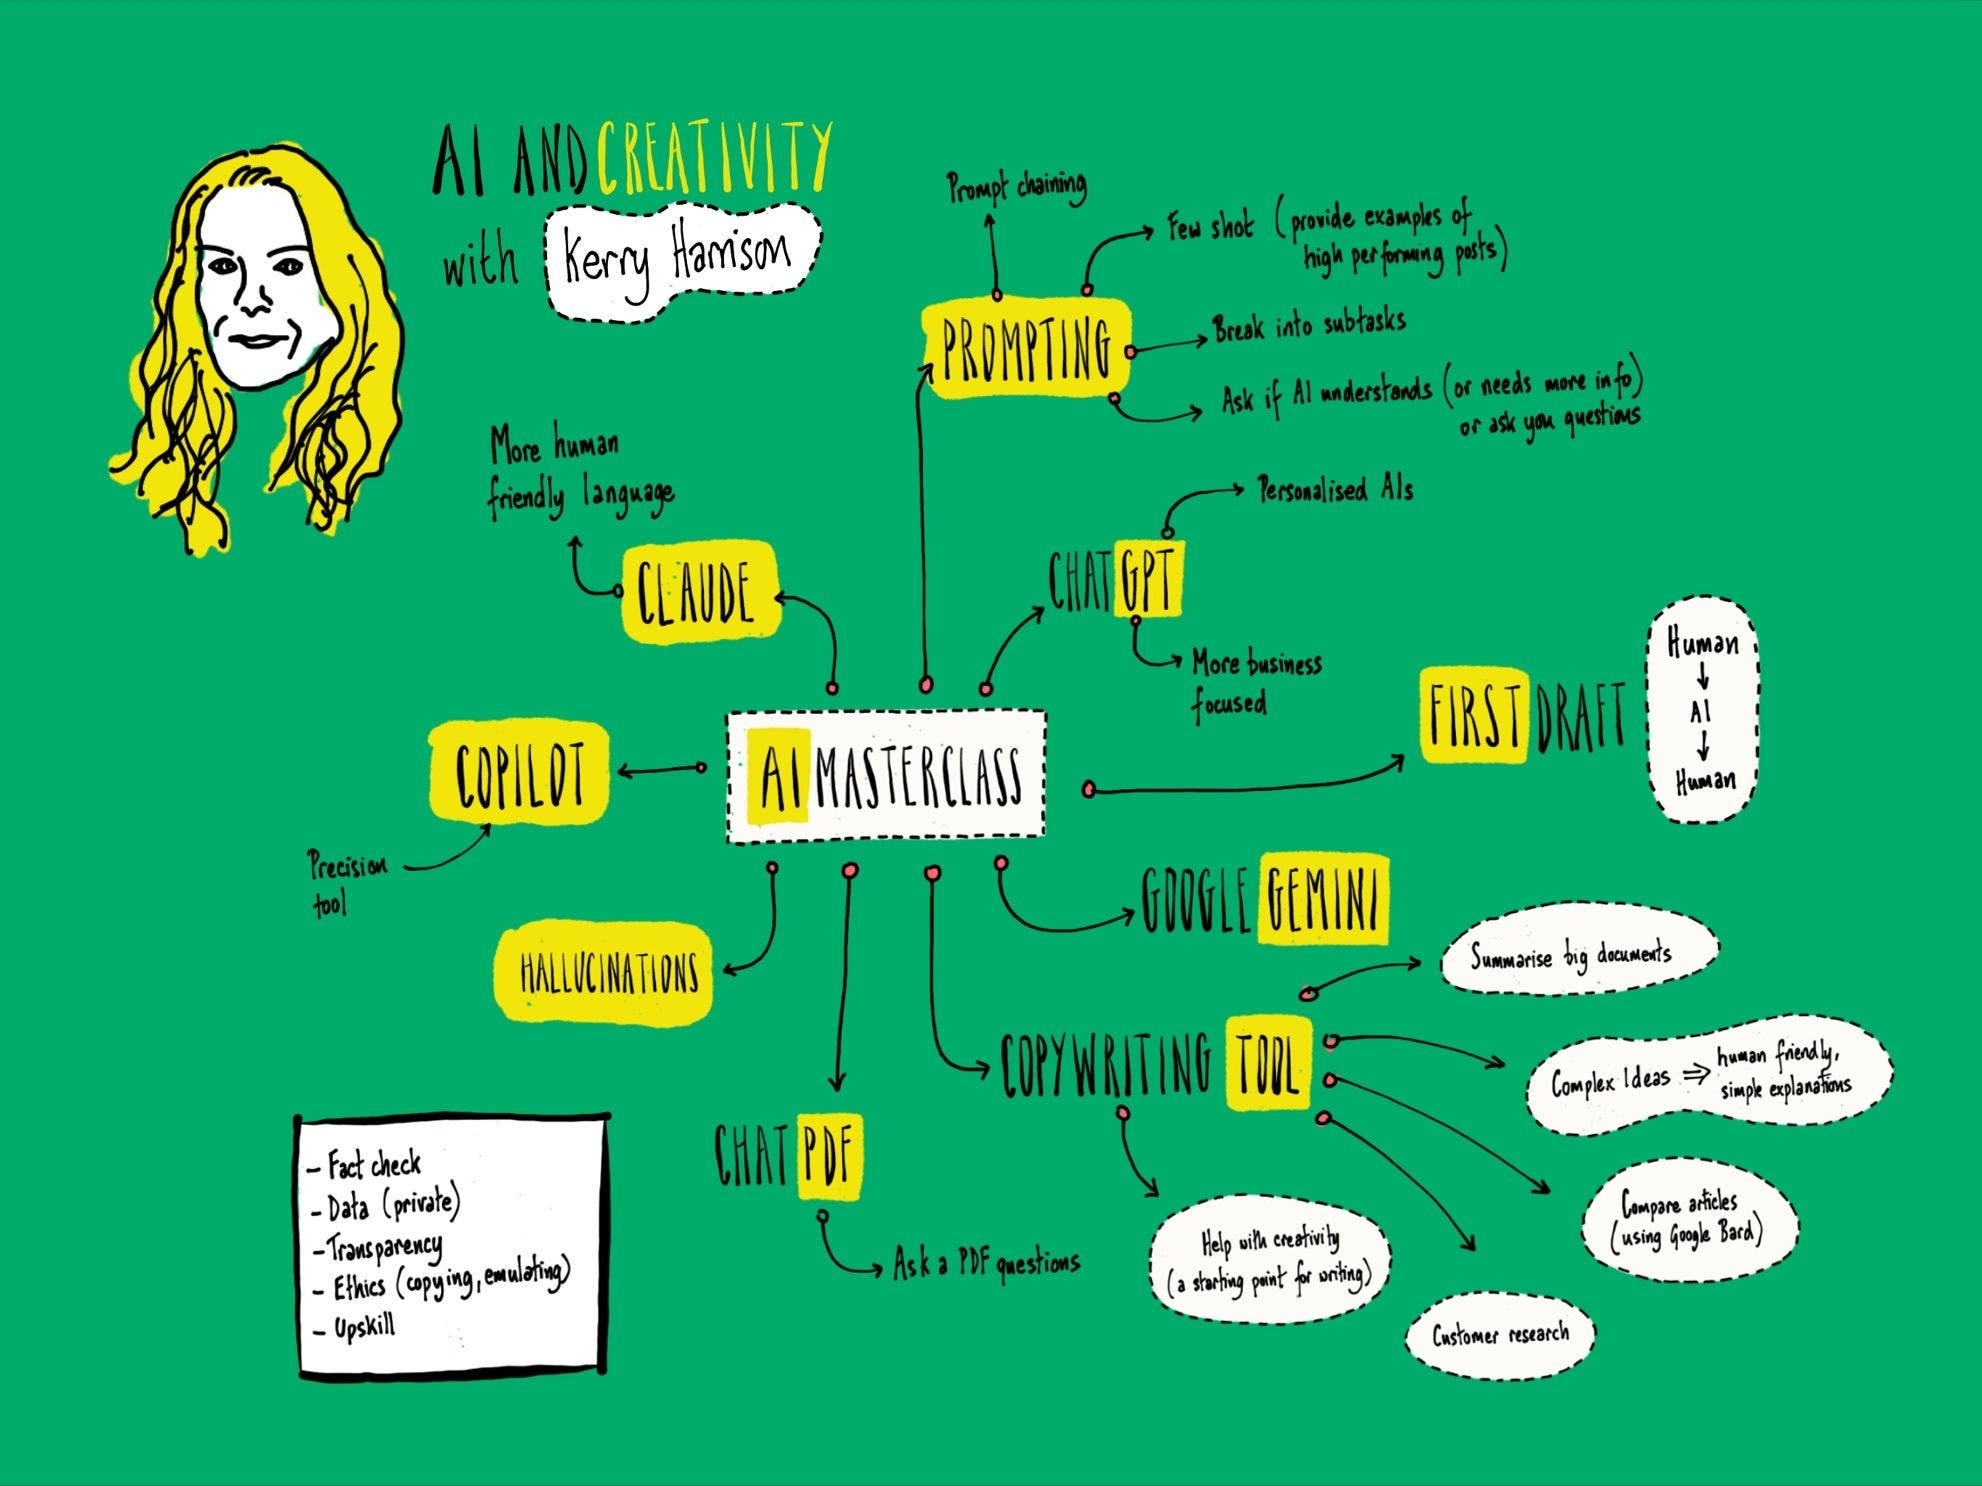 AI AND CREATIVITY
with Kerry Harrison
Prompt chaining
Few shot (provide examples of
high performing posts)
PROMPTING
Break into subtasks
Ask if AI understands (or needs more info)
or ask you questions
More human
friendly language
CLAUDE
Personalised AIs
CHAT GPT
More business
focused
FIRST DRAFT
Human
↓
AI
↓
Human
COPILOT
Precision
tool
AI MASTERCLASS
HALLUCINATIONS
GOOGLE GEMINI
Summarise big documents
COPYWRITING TOOL
Complex Ideas ⇒ human friendly,
simple explanations
Compare articles
(using Google Bard)
Help with creativity
(a starting point for writing)
Customer research
CHAT PDF
Ask a PDF questions
- Fact check
- Data (private)
- Transparency
- Ethics (copying, emulating)
- Upskill